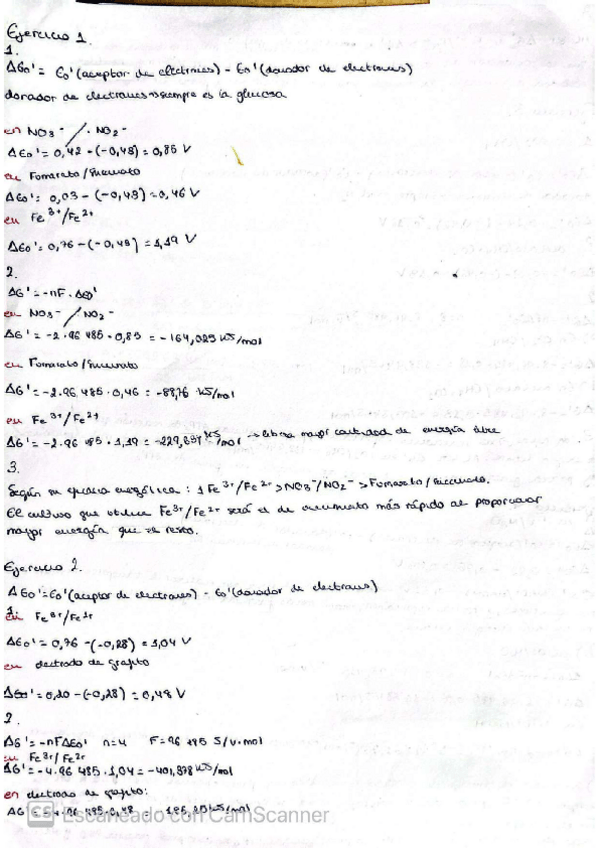 Ejercicio 1.
1.
ΔEo' = Eo' (aceptor de electrones) - Eo' (donador de electrones)
donador de electrones → siempre es la glucosa
en NO3⁻ / NO2⁻
ΔEo' = 0,42 - (-0,43) = 0,85 V
en Fumarato / succinato
ΔEo' = 0,03 - (-0,43) = 0,46 V
en Fe³⁺/Fe²⁺
ΔEo' = 0,76 - (-0,43) = 1,19 V
2.
ΔG' = -nF · ΔEo'
en NO3⁻ / NO2⁻
ΔG' = -2 · 96 485 · 0,85 = - 164,025 kJ/mol
en Fumarato / succinato
ΔG' = -2 · 96 485 · 0,46 = -88,76 kJ/mol
en Fe³⁺/Fe²⁺
ΔG' = -2 · 96 485 · 1,19 = -229,634 kJ/mol → libera mayor cantidad de energía libre
3.
Según su eficacia energética: 1 Fe³⁺/Fe²⁺ > NO3⁻/NO2⁻ > Fumarato / succinato.
El cultivo que utilice Fe³⁺/Fe²⁺ será el de crecimiento más rápido al proporcionar
mayor energía que el resto.
Ejercicio 2.
ΔEo' = Eo' (aceptor de electrones) - Eo' (donador de electrones)
1.
en Fe³⁺/Fe²⁺
ΔEo' = 0,76 - (-0,28) = 1,04 V
en electrodo de grafito
ΔEo' = 0,20 - (-0,28) = 0,48 V
2.
ΔG' = -nFΔEo' n=4 F=96 485 J/V·mol
en Fe³⁺/Fe²⁺
ΔG' = -4 · 96 485 · 1,04 = -401,378 kJ/mol
en electrodo de grafito:
ΔG = -4 · 96 485 · 0,48 = kJ/mol
CS Escaneado con CamScanner